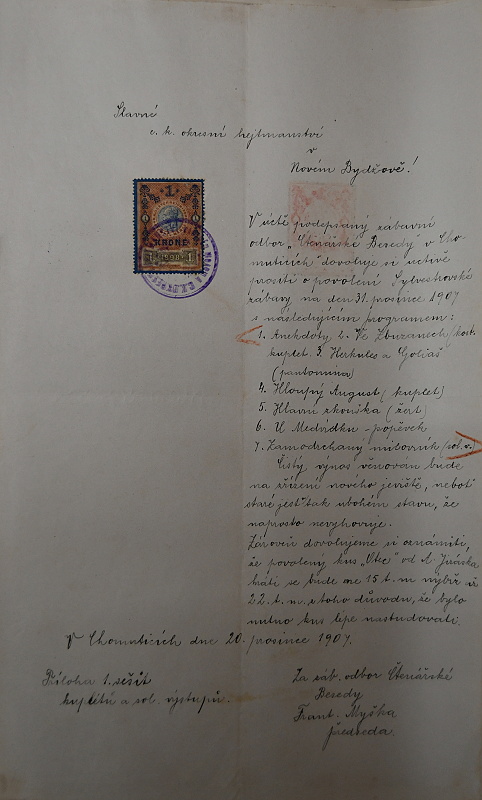 Slavné
c. k. okresní hejtmanství
v
Novém Bydžově!
1
KRONE
1898
V úctě podepsaný zábavní
odbor „Čtenářské Besedy v Cho-
muticích" dovoluje si uctivě
prositi o povolení Sylvestrovské
zábavy na den 31. prosince 1907
s následujícím programem:
1. Anekdoty, 2. Ve Zbuzanech/kost.
kuplet. 3. Herkules a Goliáš
(pantomina)
4. Hloupý August (kuplet)
5. Hlavní zkouška (žert)
6. U Medvídku - popěvek
7. Zamodrchaný milovník (sol. v.)
Čistý výnos věnován bude
na zřízení nového jeviště, neboť
staré jest tak ubohém stavu, že
naprosto nevyhovuje.
Zároveň dovolujeme si oznámiti,
že povolený kus „Otec" od A. Jiráska
hráti se bude ne 15 t. m. nýbrž až
22. t. m. z toho důvodu, že bylo
nutno kus lépe nastudovati.
V Chomuticích dne 20. prosince 1907.
Příloha 1. sešit
kupletů a sol. výstupů.
Za záb. odbor Čtenářské
Besedy
Frant. Myška
předseda.